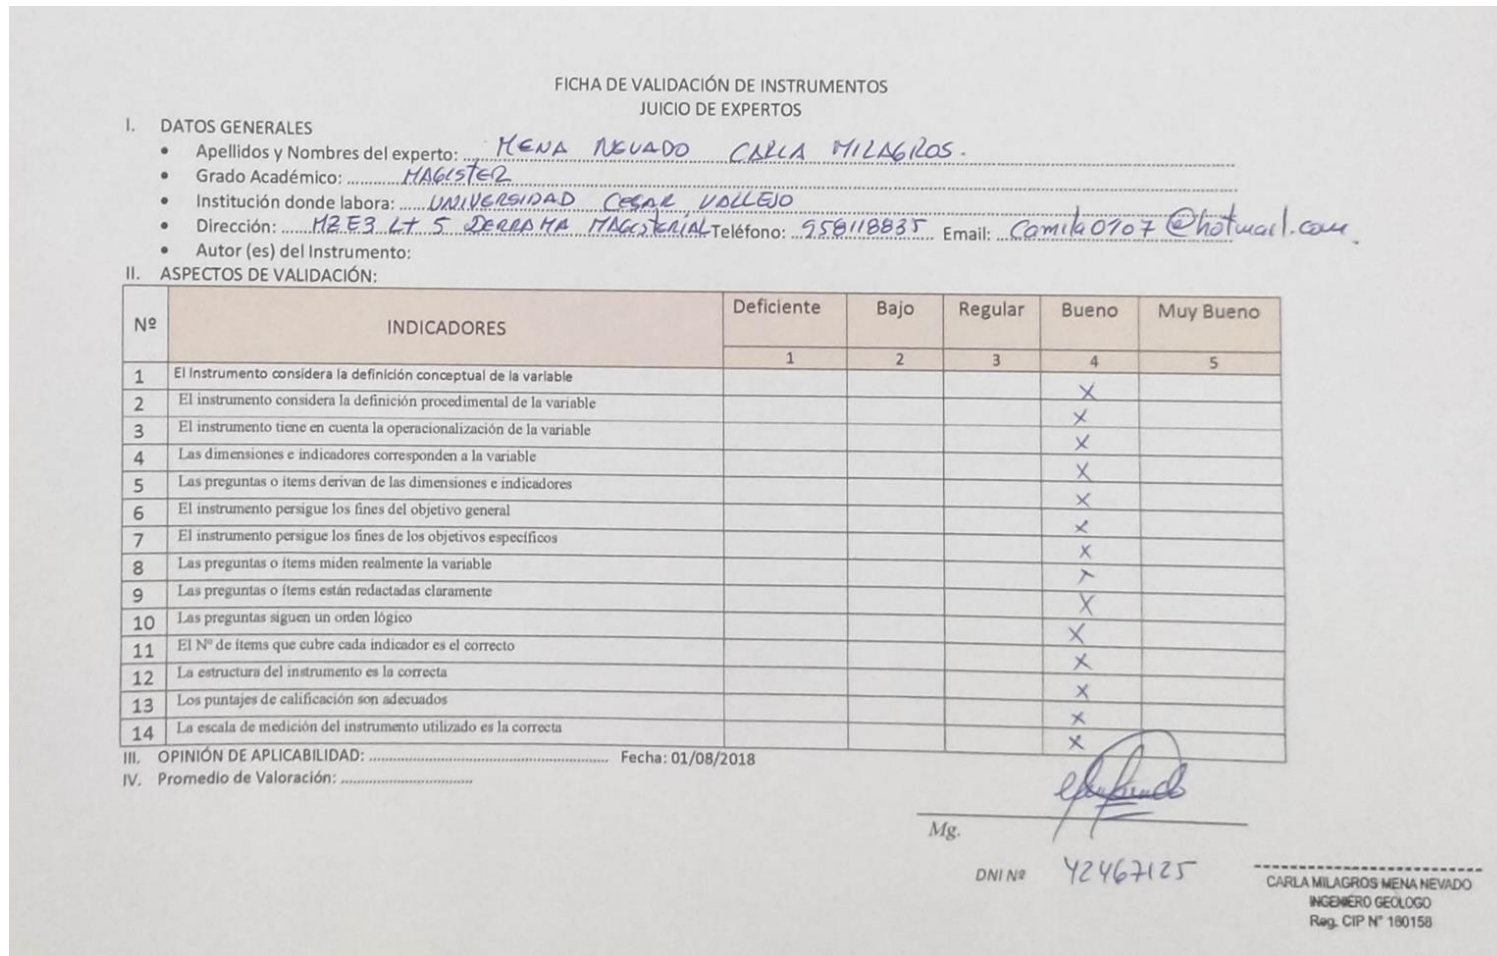 FICHA DE VALIDACIÓN DE INSTRUMENTOS
JUICIO DE EXPERTOS
I. DATOS GENERALES
• Apellidos y Nombres del experto: MENA NEVADO CARLA MILAGROS.
• Grado Académico: MAGISTER
• Institución donde labora: UNIVERSIDAD CESAR VALLEJO
• Dirección: MZ E3 LT 5 DERRAMA MAGISTERIAL Teléfono: 958118835 Email: Camila0707@hotmail.com
• Autor (es) del Instrumento:
II. ASPECTOS DE VALIDACIÓN:
Nº INDICADORES Deficiente Bajo Regular Bueno Muy Bueno
1 2 3 4 5
1 El Instrumento considera la definición conceptual de la variable X
2 El instrumento considera la definición procedimental de la variable X
3 El instrumento tiene en cuenta la operacionalización de la variable X
4 Las dimensiones e indicadores corresponden a la variable X
5 Las preguntas o ítems derivan de las dimensiones e indicadores X
6 El instrumento persigue los fines del objetivo general X
7 El instrumento persigue los fines de los objetivos específicos X
8 Las preguntas o ítems miden realmente la variable X
9 Las preguntas o ítems están redactadas claramente X
10 Las preguntas siguen un orden lógico X
11 El Nº de ítems que cubre cada indicador es el correcto X
12 La estructura del instrumento es la correcta X
13 Los puntajes de calificación son adecuados X
14 La escala de medición del instrumento utilizado es la correcta X
III. OPINIÓN DE APLICABILIDAD: Fecha: 01/08/2018
IV. Promedio de Valoración:
Mg.
DNI Nº 42467125
CARLA MILAGROS MENA NEVADO
INGENIERO GEOLOGO
Reg. CIP N° 160158